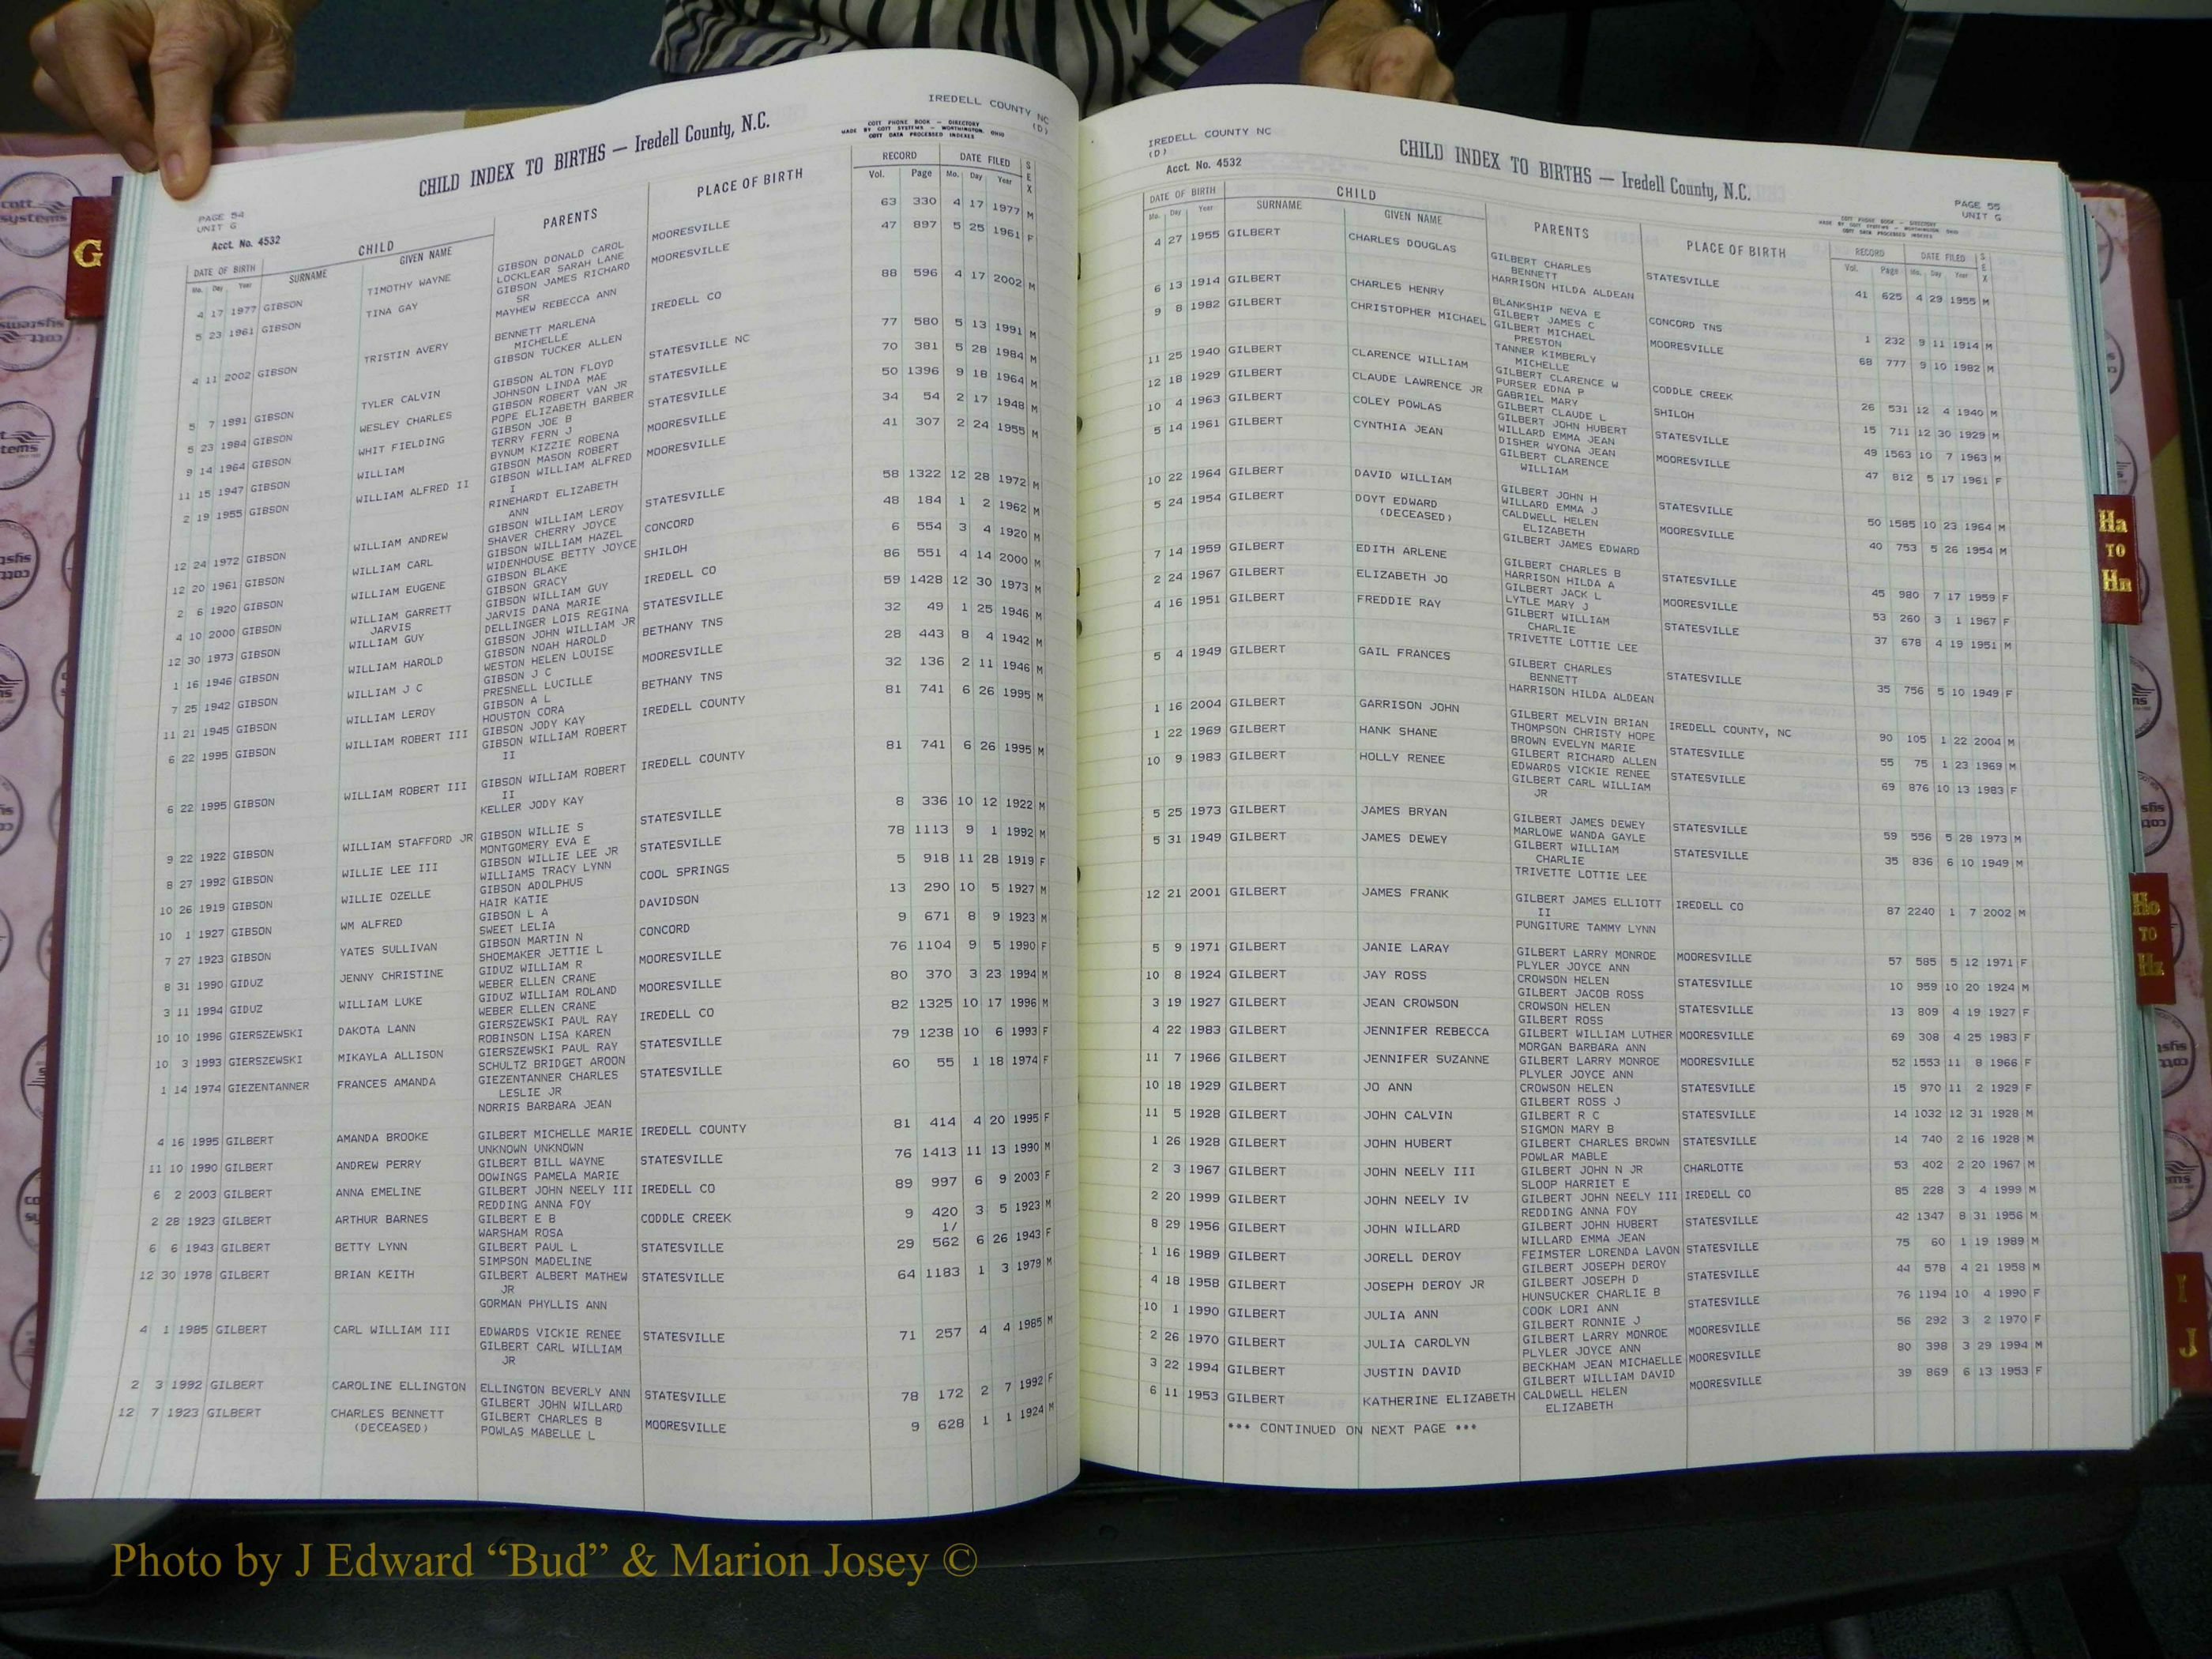 IREDELL COUNTY NC
(D)
CHILD INDEX TO BIRTHS — Iredell County, N.C.
COTT PHONE BOOK — DIRECTORY
MADE BY COTT SYSTEMS — WORTHINGTON, OHIO
COTT DATA PROCESSED INDEXES
PAGE 54
UNIT G
Acct. No. 4532
DATE OF BIRTH CHILD PARENTS PLACE OF BIRTH RECORD DATE FILED SEX
Mo. Day Year SURNAME GIVEN NAME Vol. Page Mo. Day Year
4 17 1977 GIBSON TIMOTHY WAYNE GIBSON DONALD CAROL MOORESVILLE 63 330 4 17 1977 M
LOCKLEAR SARAH LANE
5 23 1961 GIBSON TINA GAY GIBSON JAMES RICHARD MOORESVILLE 47 897 5 25 1961 F
SR
MAYHEW REBECCA ANN
4 11 2002 GIBSON TRISTIN AVERY BENNETT MARLENA IREDELL CO 88 596 4 17 2002 M
MICHELLE
GIBSON TUCKER ALLEN
5 7 1991 GIBSON TYLER CALVIN GIBSON ALTON FLOYD STATESVILLE NC 77 580 5 13 1991 M
JOHNSON LINDA MAE
5 23 1984 GIBSON WESLEY CHARLES GIBSON ROBERT VAN JR STATESVILLE 70 381 5 28 1984 M
POPE ELIZABETH BARBER
9 14 1964 GIBSON WHIT FIELDING GIBSON JOE B STATESVILLE 50 1396 9 18 1964 M
TERRY FERN J
11 15 1947 GIBSON WILLIAM BYNUM KIZZIE ROBENA MOORESVILLE 34 54 2 17 1948 M
GIBSON MASON ROBERT
2 19 1955 GIBSON WILLIAM ALFRED II GIBSON WILLIAM ALFRED MOORESVILLE 41 307 2 24 1955 M
I
RINEHARDT ELIZABETH
ANN
12 24 1972 GIBSON WILLIAM ANDREW GIBSON WILLIAM LEROY STATESVILLE 58 1322 12 28 1972 M
SHAVER CHERRY JOYCE
12 20 1961 GIBSON WILLIAM CARL GIBSON WILLIAM HAZEL CONCORD 48 184 1 2 1962 M
WIDENHOUSE BETTY JOYCE
2 6 1920 GIBSON WILLIAM EUGENE GIBSON BLAKE SHILOH 6 554 3 4 1920 M
GIBSON GRACY
4 10 2000 GIBSON WILLIAM GARRETT GIBSON WILLIAM GUY IREDELL CO 86 551 4 14 2000 M
JARVIS JARVIS DANA MARIE
12 30 1973 GIBSON WILLIAM GUY DELLINGER LOIS REGINA STATESVILLE 59 1428 12 30 1973 M
GIBSON JOHN WILLIAM JR
1 16 1946 GIBSON WILLIAM HAROLD GIBSON NOAH HAROLD BETHANY TNS 32 49 1 25 1946 M
WESTON HELEN LOUISE
7 25 1942 GIBSON WILLIAM J C GIBSON J C MOORESVILLE 28 443 8 4 1942 M
PRESNELL LUCILLE
11 21 1945 GIBSON WILLIAM LEROY GIBSON A L BETHANY TNS 32 136 2 11 1946 M
HOUSTON CORA
6 22 1995 GIBSON WILLIAM ROBERT III GIBSON JODY KAY IREDELL COUNTY 81 741 6 26 1995 M
GIBSON WILLIAM ROBERT
II
6 22 1995 GIBSON WILLIAM ROBERT III GIBSON WILLIAM ROBERT IREDELL COUNTY 81 741 6 26 1995 M
II
KELLER JODY KAY
9 22 1922 GIBSON WILLIAM STAFFORD JR GIBSON WILLIE S STATESVILLE 8 336 10 12 1922 M
MONTGOMERY EVA E
8 27 1992 GIBSON WILLIE LEE III GIBSON WILLIE LEE JR STATESVILLE 78 1113 9 1 1992 M
WILLIAMS TRACY LYNN
10 26 1919 GIBSON WILLIE OZELLE GIBSON ADOLPHUS COOL SPRINGS 5 918 11 28 1919 F
HAIR KATIE
10 1 1927 GIBSON WM ALFRED GIBSON L A DAVIDSON 13 290 10 5 1927 M
SWEET LELIA
7 27 1923 GIBSON YATES SULLIVAN GIBSON MARTIN N CONCORD 9 671 8 9 1923 M
SHOEMAKER JETTIE L
8 31 1990 GIDUZ JENNY CHRISTINE GIDUZ WILLIAM R MOORESVILLE 76 1104 9 5 1990 F
WEBER ELLEN CRANE
3 11 1994 GIDUZ WILLIAM LUKE GIDUZ WILLIAM ROLAND MOORESVILLE 80 370 3 23 1994 M
WEBER ELLEN CRANE
10 10 1996 GIERSZEWSKI DAKOTA LANN GIERSZEWSKI PAUL RAY IREDELL CO 82 1325 10 17 1996 M
ROBINSON LISA KAREN
10 3 1993 GIERSZEWSKI MIKAYLA ALLISON GIERSZEWSKI PAUL RAY STATESVILLE 79 1238 10 6 1993 F
SCHULTZ BRIDGET AROON
1 14 1974 GIEZENTANNER FRANCES AMANDA GIEZENTANNER CHARLES STATESVILLE 60 55 1 18 1974 F
LESLIE JR
NORRIS BARBARA JEAN
4 16 1995 GILBERT AMANDA BROOKE GILBERT MICHELLE MARIE IREDELL COUNTY 81 414 4 20 1995 F
UNKNOWN UNKNOWN
11 10 1990 GILBERT ANDREW PERRY GILBERT BILL WAYNE STATESVILLE 76 1413 11 13 1990 M
DOWINGS PAMELA MARIE
6 2 2003 GILBERT ANNA EMELINE GILBERT JOHN NEELY III IREDELL CO 89 997 6 9 2003 F
REDDING ANNA FOY
2 28 1923 GILBERT ARTHUR BARNES GILBERT E B CODDLE CREEK 9 420 3 5 1923 M
WARSHAM ROSA 1/
6 6 1943 GILBERT BETTY LYNN GILBERT PAUL L STATESVILLE 29 562 6 26 1943 F
SIMPSON MADELINE
12 30 1978 GILBERT BRIAN KEITH GILBERT ALBERT MATHEW STATESVILLE 64 1183 1 3 1979 M
JR
GORMAN PHYLLIS ANN
4 1 1985 GILBERT CARL WILLIAM III EDWARDS VICKIE RENEE STATESVILLE 71 257 4 4 1985 M
GILBERT CARL WILLIAM
JR
2 3 1992 GILBERT CAROLINE ELLINGTON ELLINGTON BEVERLY ANN STATESVILLE 78 172 2 7 1992 F
GILBERT JOHN WILLARD
12 7 1923 GILBERT CHARLES BENNETT GILBERT CHARLES B MOORESVILLE 9 628 1 1 1924 M
(DECEASED) POWLAS MABELLE L
IREDELL COUNTY NC
(D)
Acct. No. 4532
CHILD INDEX TO BIRTHS — Iredell County, N.C.
PAGE 55
UNIT G
COTT PHONE BOOK — DIRECTORY
MADE BY COTT SYSTEMS — WORTHINGTON, OHIO
COTT DATA PROCESSED INDEXES
DATE OF BIRTH CHILD PARENTS PLACE OF BIRTH RECORD DATE FILED SEX
Mo. Day Year SURNAME GIVEN NAME Vol. Page Mo. Day Year
4 27 1955 GILBERT CHARLES DOUGLAS GILBERT CHARLES STATESVILLE 41 625 4 29 1955 M
BENNETT
HARRISON HILDA ALDEAN
6 13 1914 GILBERT CHARLES HENRY BLANKSHIP NEVA E CONCORD TNS 1 232 9 11 1914 M
GILBERT JAMES C
9 8 1982 GILBERT CHRISTOPHER MICHAEL GILBERT MICHAEL MOORESVILLE 68 777 9 10 1982 M
PRESTON
TANNER KIMBERLY
MICHELLE
11 25 1940 GILBERT CLARENCE WILLIAM GILBERT CLARENCE W CODDLE CREEK 26 531 12 4 1940 M
PURSER EDNA P
12 18 1929 GILBERT CLAUDE LAWRENCE JR GABRIEL MARY SHILOH 15 711 12 30 1929 M
GILBERT CLAUDE L
10 4 1963 GILBERT COLEY POWLAS GILBERT JOHN HUBERT STATESVILLE 49 1563 10 7 1963 M
WILLARD EMMA JEAN
5 14 1961 GILBERT CYNTHIA JEAN DISHER WYONA JEAN MOORESVILLE 47 812 5 17 1961 F
GILBERT CLARENCE
WILLIAM
10 22 1964 GILBERT DAVID WILLIAM GILBERT JOHN H STATESVILLE 50 1585 10 23 1964 M
WILLARD EMMA J
5 24 1954 GILBERT DOYT EDWARD CALDWELL HELEN MOORESVILLE 40 753 5 26 1954 M
(DECEASED) ELIZABETH
GILBERT JAMES EDWARD
7 14 1959 GILBERT EDITH ARLENE GILBERT CHARLES B STATESVILLE 45 980 7 17 1959 F
HARRISON HILDA A
2 24 1967 GILBERT ELIZABETH JO GILBERT JACK L MOORESVILLE 53 260 3 1 1967 F
LYTLE MARY J
4 16 1951 GILBERT FREDDIE RAY GILBERT WILLIAM STATESVILLE 37 678 4 19 1951 M
CHARLIE
TRIVETTE LOTTIE LEE
5 4 1949 GILBERT GAIL FRANCES GILBERT CHARLES STATESVILLE 35 756 5 10 1949 F
BENNETT
HARRISON HILDA ALDEAN
1 16 2004 GILBERT GARRISON JOHN GILBERT MELVIN BRIAN IREDELL COUNTY, NC 90 105 1 22 2004 M
THOMPSON CHRISTY HOPE
1 22 1969 GILBERT HANK SHANE BROWN EVELYN MARIE STATESVILLE 55 75 1 23 1969 M
GILBERT RICHARD ALLEN
10 9 1983 GILBERT HOLLY RENEE EDWARDS VICKIE RENEE STATESVILLE 69 876 10 13 1983 F
GILBERT CARL WILLIAM
JR
5 25 1973 GILBERT JAMES BRYAN GILBERT JAMES DEWEY STATESVILLE 59 556 5 28 1973 M
MARLOWE WANDA GAYLE
5 31 1949 GILBERT JAMES DEWEY GILBERT WILLIAM STATESVILLE 35 836 6 10 1949 M
CHARLIE
TRIVETTE LOTTIE LEE
12 21 2001 GILBERT JAMES FRANK GILBERT JAMES ELLIOTT IREDELL CO 87 2240 1 7 2002 M
II
PUNGITURE TAMMY LYNN
5 9 1971 GILBERT JANIE LARAY GILBERT LARRY MONROE MOORESVILLE 57 585 5 12 1971 F
PLYLER JOYCE ANN
10 8 1924 GILBERT JAY ROSS CROWSON HELEN STATESVILLE 10 959 10 20 1924 M
GILBERT JACOB ROSS
3 19 1927 GILBERT JEAN CROWSON CROWSON HELEN STATESVILLE 13 809 4 19 1927 F
GILBERT ROSS
4 22 1983 GILBERT JENNIFER REBECCA GILBERT WILLIAM LUTHER MOORESVILLE 69 308 4 25 1983 F
MORGAN BARBARA ANN
11 7 1966 GILBERT JENNIFER SUZANNE GILBERT LARRY MONROE MOORESVILLE 52 1553 11 8 1966 F
PLYLER JOYCE ANN
10 18 1929 GILBERT JO ANN CROWSON HELEN STATESVILLE 15 970 11 2 1929 F
GILBERT ROSS J
11 5 1928 GILBERT JOHN CALVIN GILBERT R C STATESVILLE 14 1032 12 31 1928 M
SIGMON MARY B
1 26 1928 GILBERT JOHN HUBERT GILBERT CHARLES BROWN STATESVILLE 14 740 2 16 1928 M
POWLAR MABLE
2 3 1967 GILBERT JOHN NEELY III GILBERT JOHN N JR CHARLOTTE 53 402 2 20 1967 M
SLOOP HARRIET E
2 20 1999 GILBERT JOHN NEELY IV GILBERT JOHN NEELY III IREDELL CO 85 228 3 4 1999 M
REDDING ANNA FOY
8 29 1956 GILBERT JOHN WILLARD GILBERT JOHN HUBERT STATESVILLE 42 1347 8 31 1956 M
WILLARD EMMA JEAN
1 16 1989 GILBERT JORELL DEROY FEIMSTER LORENDA LAVON STATESVILLE 75 60 1 19 1989 M
GILBERT JOSEPH DEROY
4 18 1958 GILBERT JOSEPH DEROY JR GILBERT JOSEPH D STATESVILLE 44 578 4 21 1958 M
HUNSUCKER CHARLIE B
10 1 1990 GILBERT JULIA ANN COOK LORI ANN STATESVILLE 76 1194 10 4 1990 F
GILBERT RONNIE J
2 26 1970 GILBERT JULIA CAROLYN GILBERT LARRY MONROE MOORESVILLE 56 292 3 2 1970 F
PLYLER JOYCE ANN
3 22 1994 GILBERT JUSTIN DAVID BECKHAM JEAN MICHAELLE MOORESVILLE 80 398 3 29 1994 M
GILBERT WILLIAM DAVID
6 11 1953 GILBERT KATHERINE ELIZABETH CALDWELL HELEN MOORESVILLE 39 869 6 13 1953 F
ELIZABETH
*** CONTINUED ON NEXT PAGE ***
G
Ha
TO
Hn
Ho
TO
Hz
I
J
cott
systems
Photo by J Edward “Bud” & Marion Josey ©